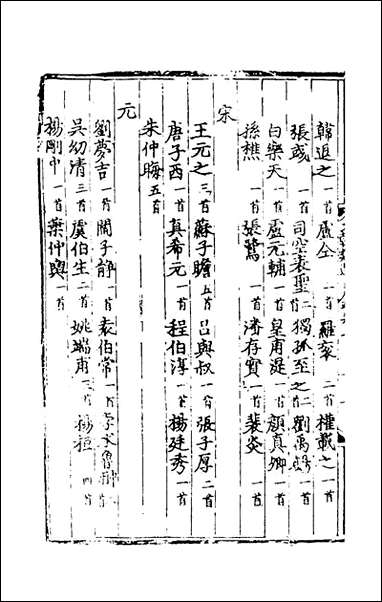 韓退之一首 盧仝一首 羅袞二首 權載之一首
張彧一首 司空表聖二首 獨孤至之二首 劉禹錫一首
白樂天一首 盧元輔一首 皇甫湜一首 顏真卿一首
孫樵一首 張鷟一首 潘存實一首 裴炎一首
宋
王元之三首 蘇子瞻五首 呂與叔一首 張子厚二首
唐子西一首 真希元一首 程伯淳一首 楊廷秀一首
朱仲晦五首
元
劉夢吉一首 閻子靜一首 袁伯常一首 孛术魯翀一首
吳幼清三首 虞伯生二首 姚端甫三首 楊桓四首
楊剛中一首 蔡仲與一首